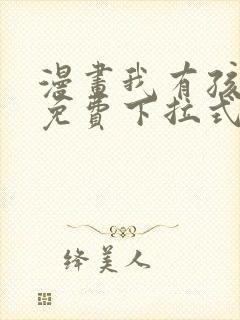 漫畫我有孩
免費下拉式
绛美人